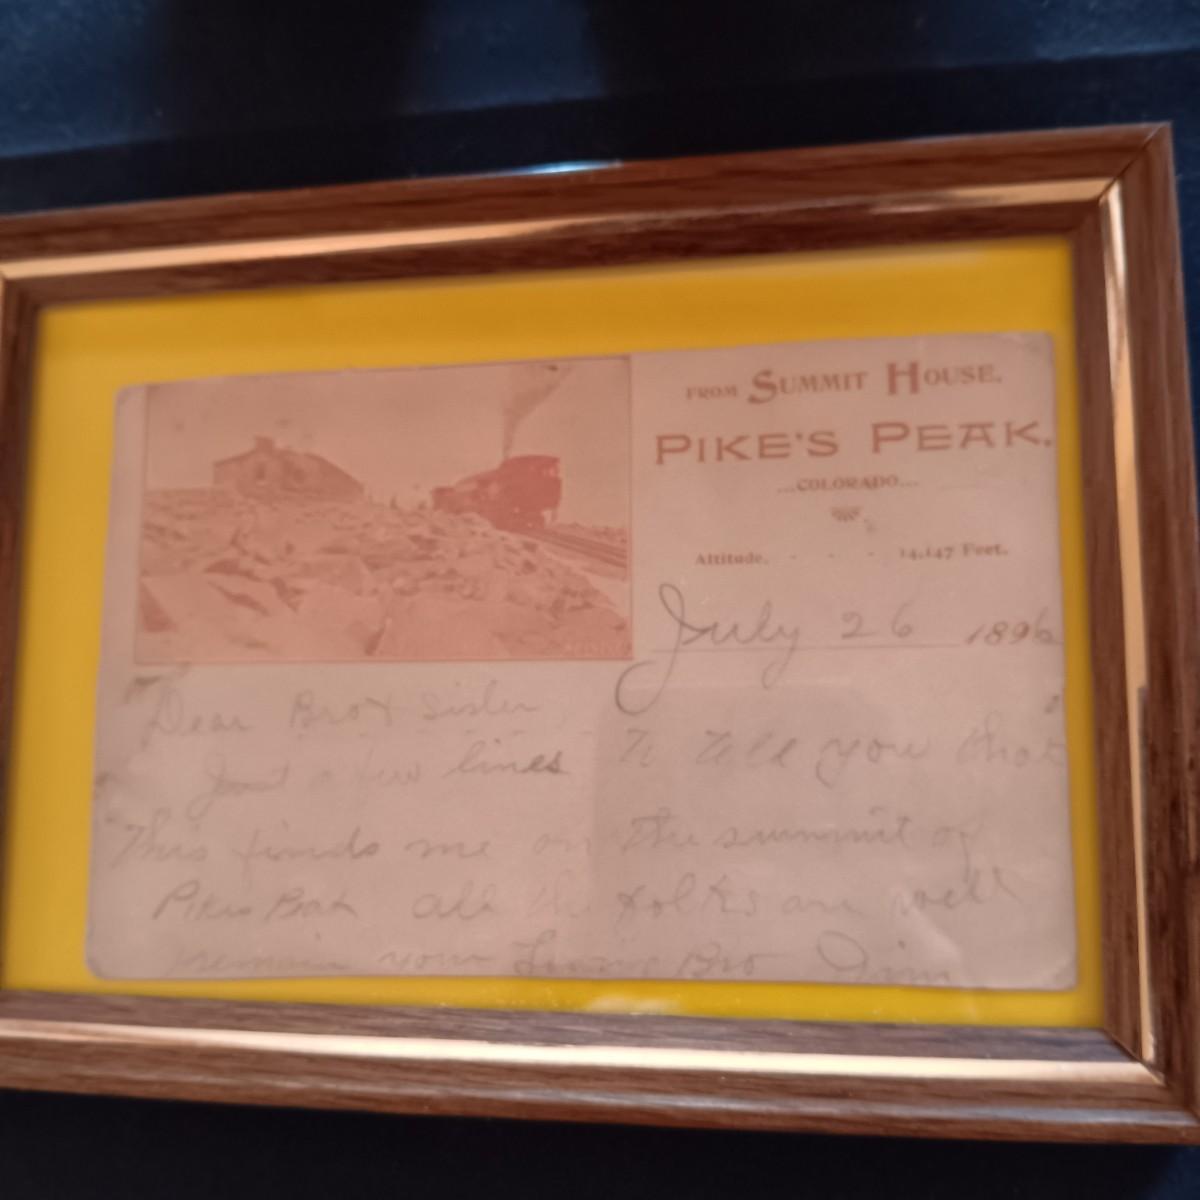 FROM SUMMIT HOUSE.
PIKE'S PEAK.
...COLORADO...
Altitude, - - - 14,147 Feet.
July 26 1896
Dear Bro & Sister
Just a few lines to tell you that
This finds me on the summit of
Pikes Peak all the folks are well
remain your Loving Bro Jim